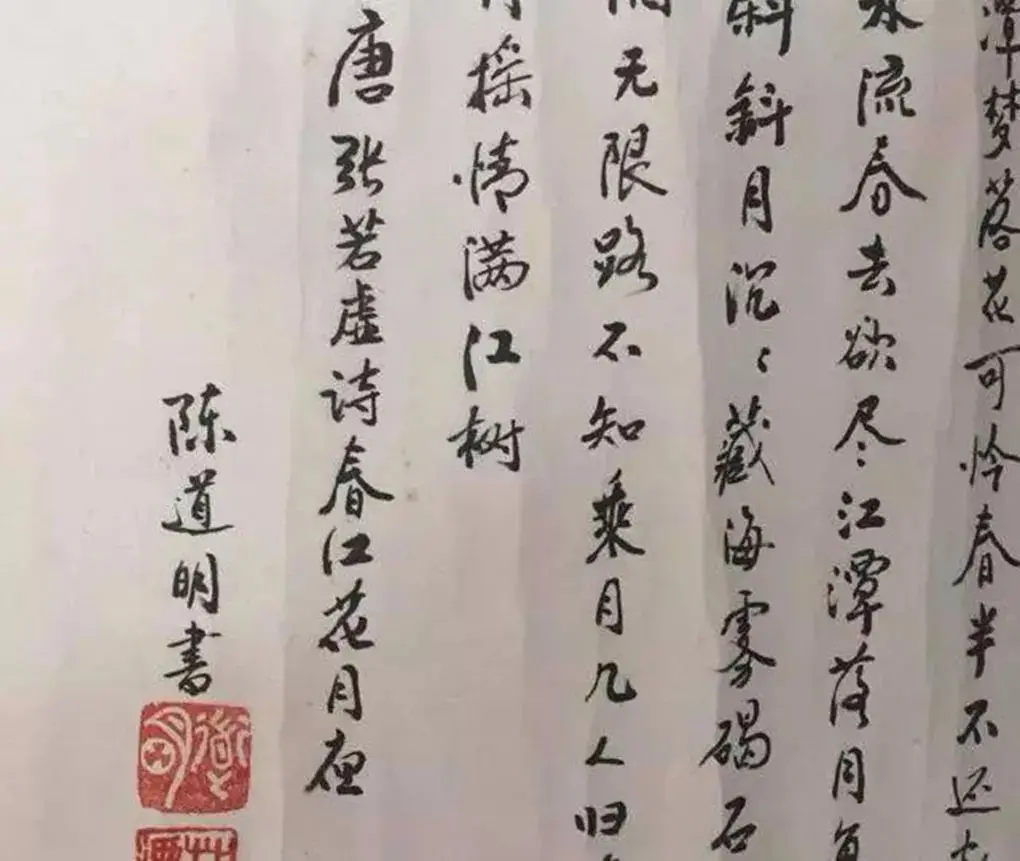 潭梦落花可怜春半不还
水流春去欲尽江潭落月复
斜斜月沉〻藏海雾碣石
无限路不知乘月几人归
摇情满江树
唐张若虚诗春江花月夜
陈道明书
道明